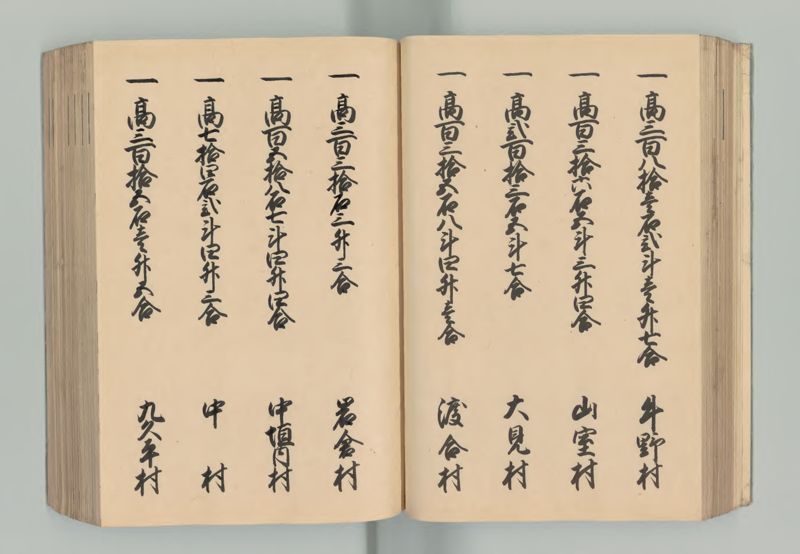 一高三百八拾壱石弐斗壱升七合 牛野村
一高百三拾六石五斗三升四合 山室村
一高弐百拾三石五斗七合 大見村
一高百三拾五石八斗四升壱合 渡合村
一高三百三拾石三升三合 岩倉村
一高百五拾八石七斗四升四合 中垣内村
一高七拾四石弐斗四升三合 中村
一高三百拾五石壱升五合 九久平村